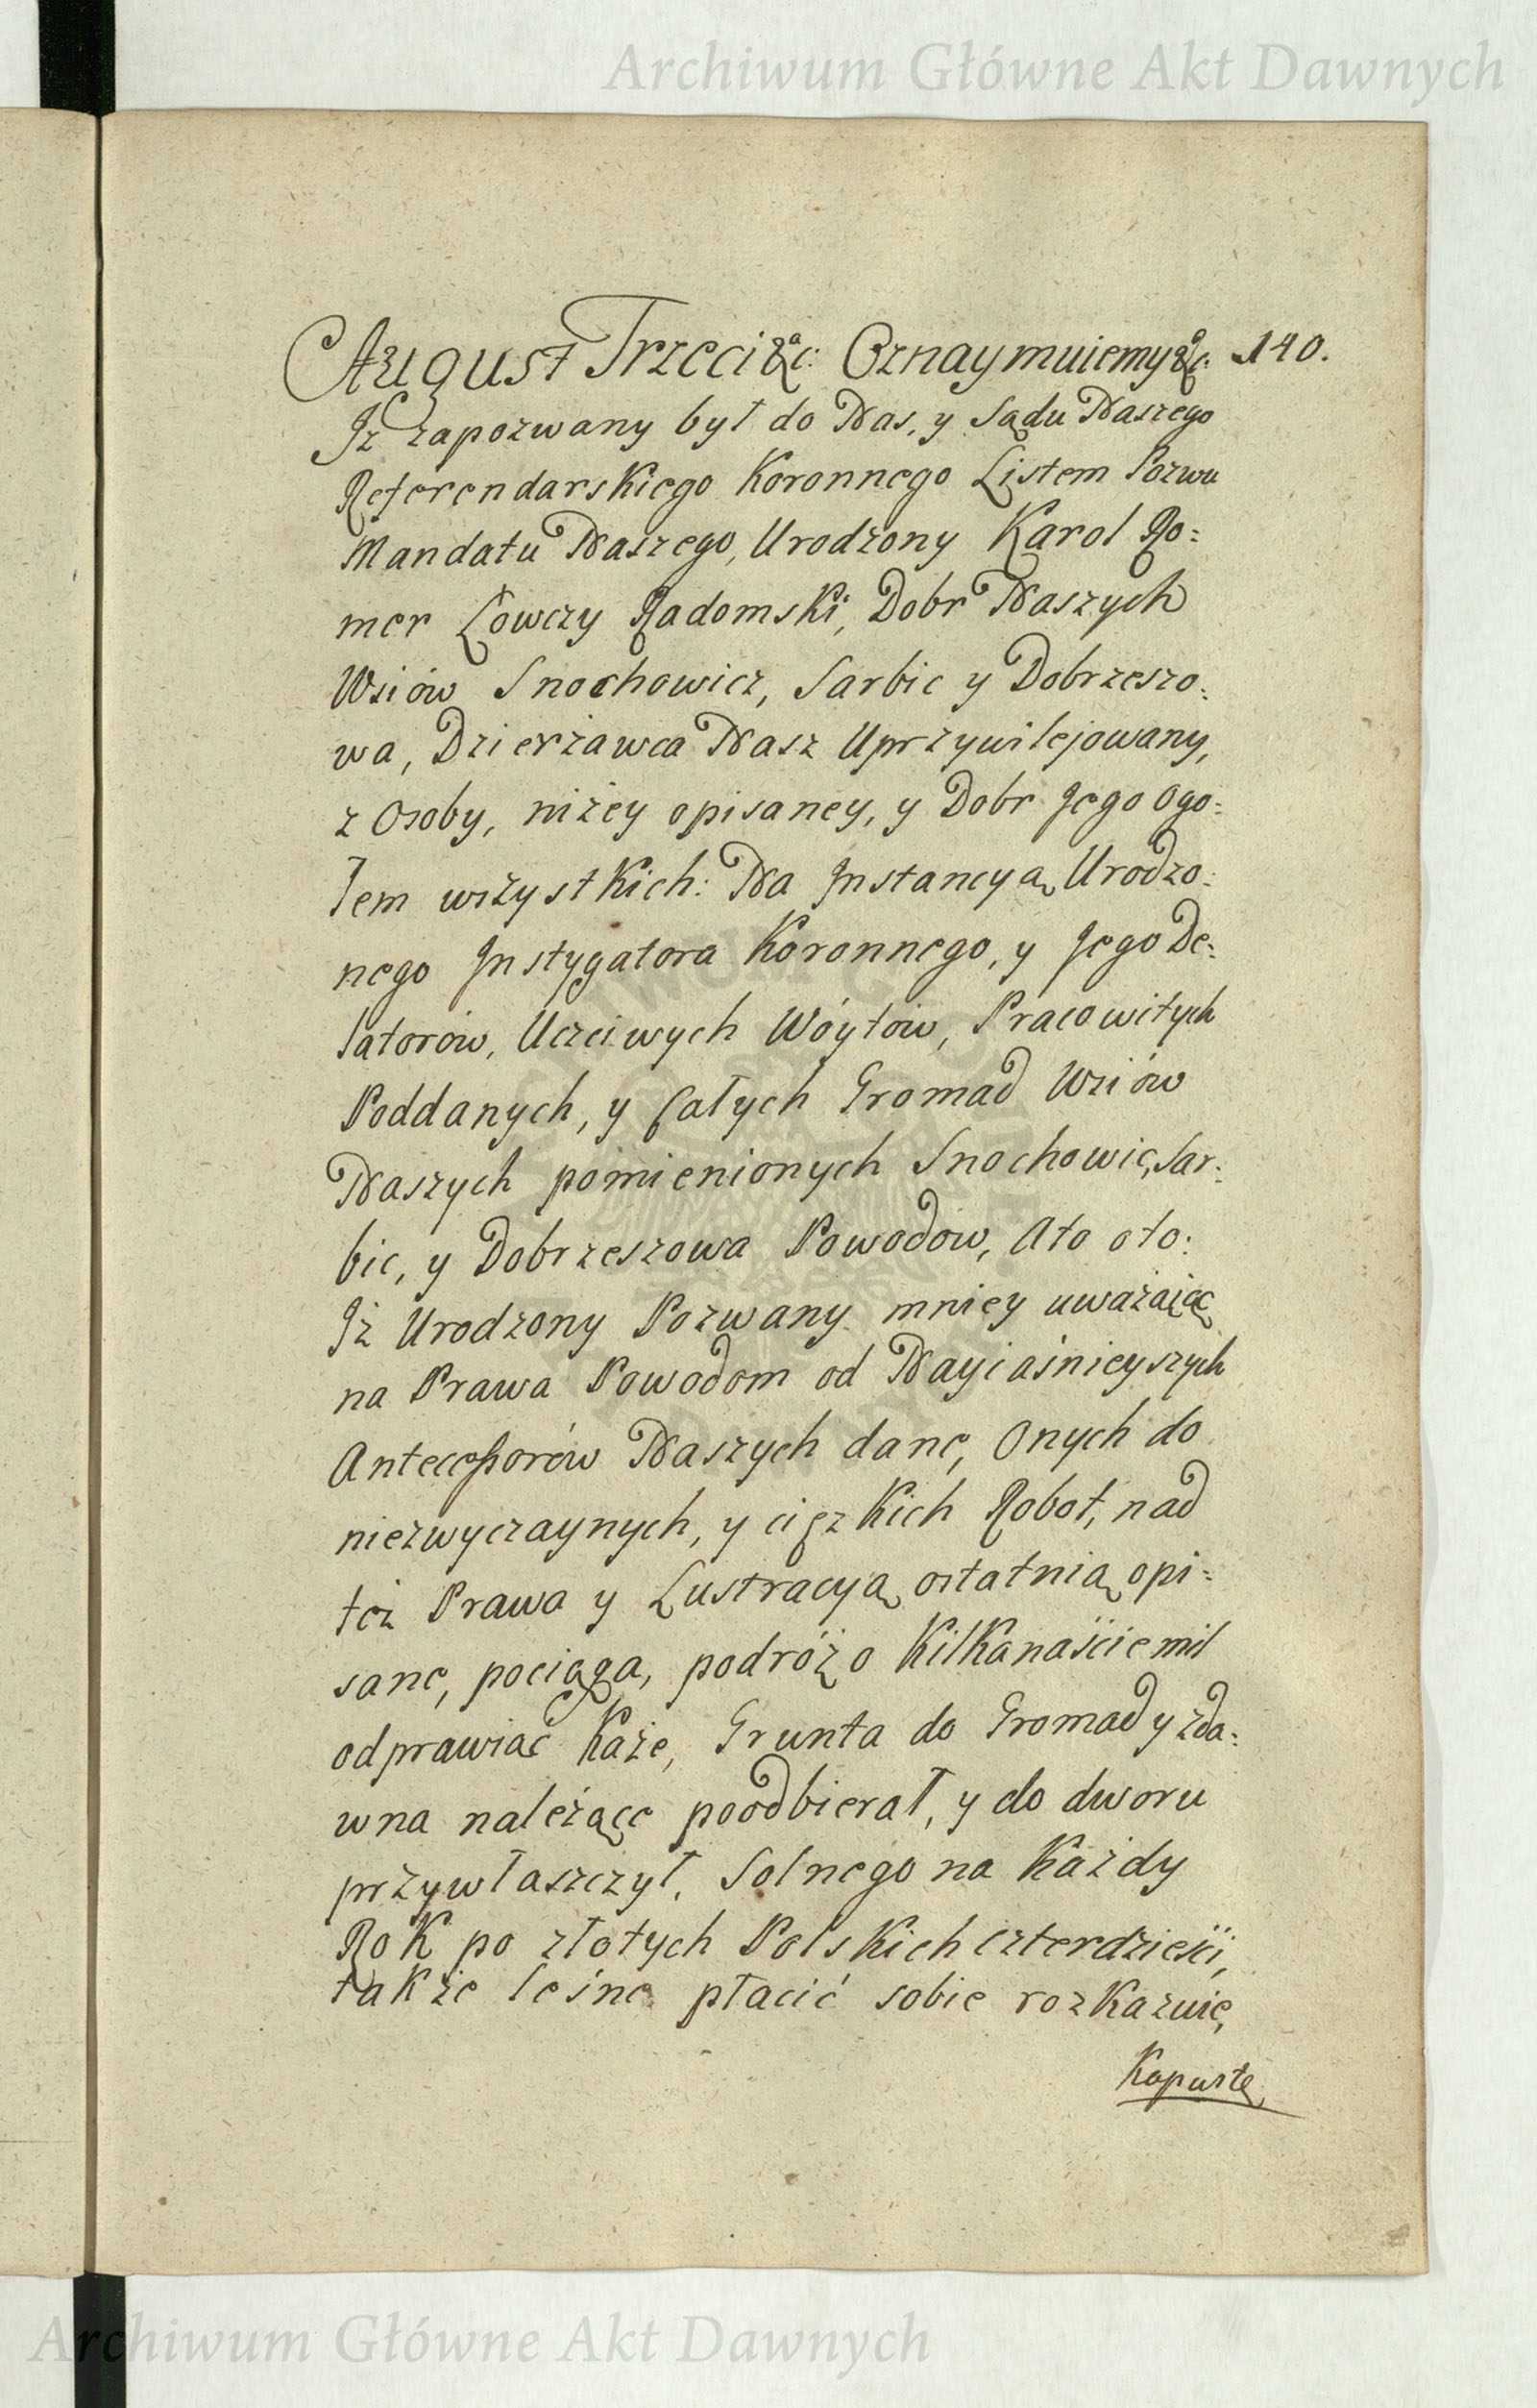 Archiwum Główne Akt Dawnych
August Trzeci &c: Oznaymuiemy &c: 140.
Iż zapozwany był do Nas, y Sądu Naszego
Referendarskiego Koronnego Listem Pozwu
Mandatu Naszego, Urodzony Karol Ro=
mer Łowczy Radomski, Dobr Naszych
Wsiów Snochowicz, Sarbic y Dobrzeszo=
wa, Dzierżawca Nasz Uprzywilejowany,
z Osoby, niżey opisaney, y Dobr Jego Ogo=
łem wszystkich: Na Instancyą Urodzo=
nego Instygatora Koronnego, y Jego De=
latorów, Uczciwych Wóytów, Pracowitych
Poddanych, y Całych Gromad Wsiów
Naszych pomienionych Snochowic, Sar=
bic, y Dobrzeszowa Powodów, Ato oto:
Iż Urodzony Pozwany mniey uważaiąc
na Prawa Powodom od Nayiaśnieyszych
Antecessorów Naszych dane, Onych do
niezwyczaynych, y cięzkich Robot, nad
też Prawa y Lustracyą ostatnią opi=
sane, pociąga, podróż o kilkanaście mil
odprawiać każe, Grunta do Gromady zda=
wna należące poodbierał, y do dworu
przywłaszczył, Solnego na każdy
Rok po złotych Polskich czterdzieści,
także leśne płacić sobie rozkazuie,
Kapustę
Archiwum Główne Akt Dawnych